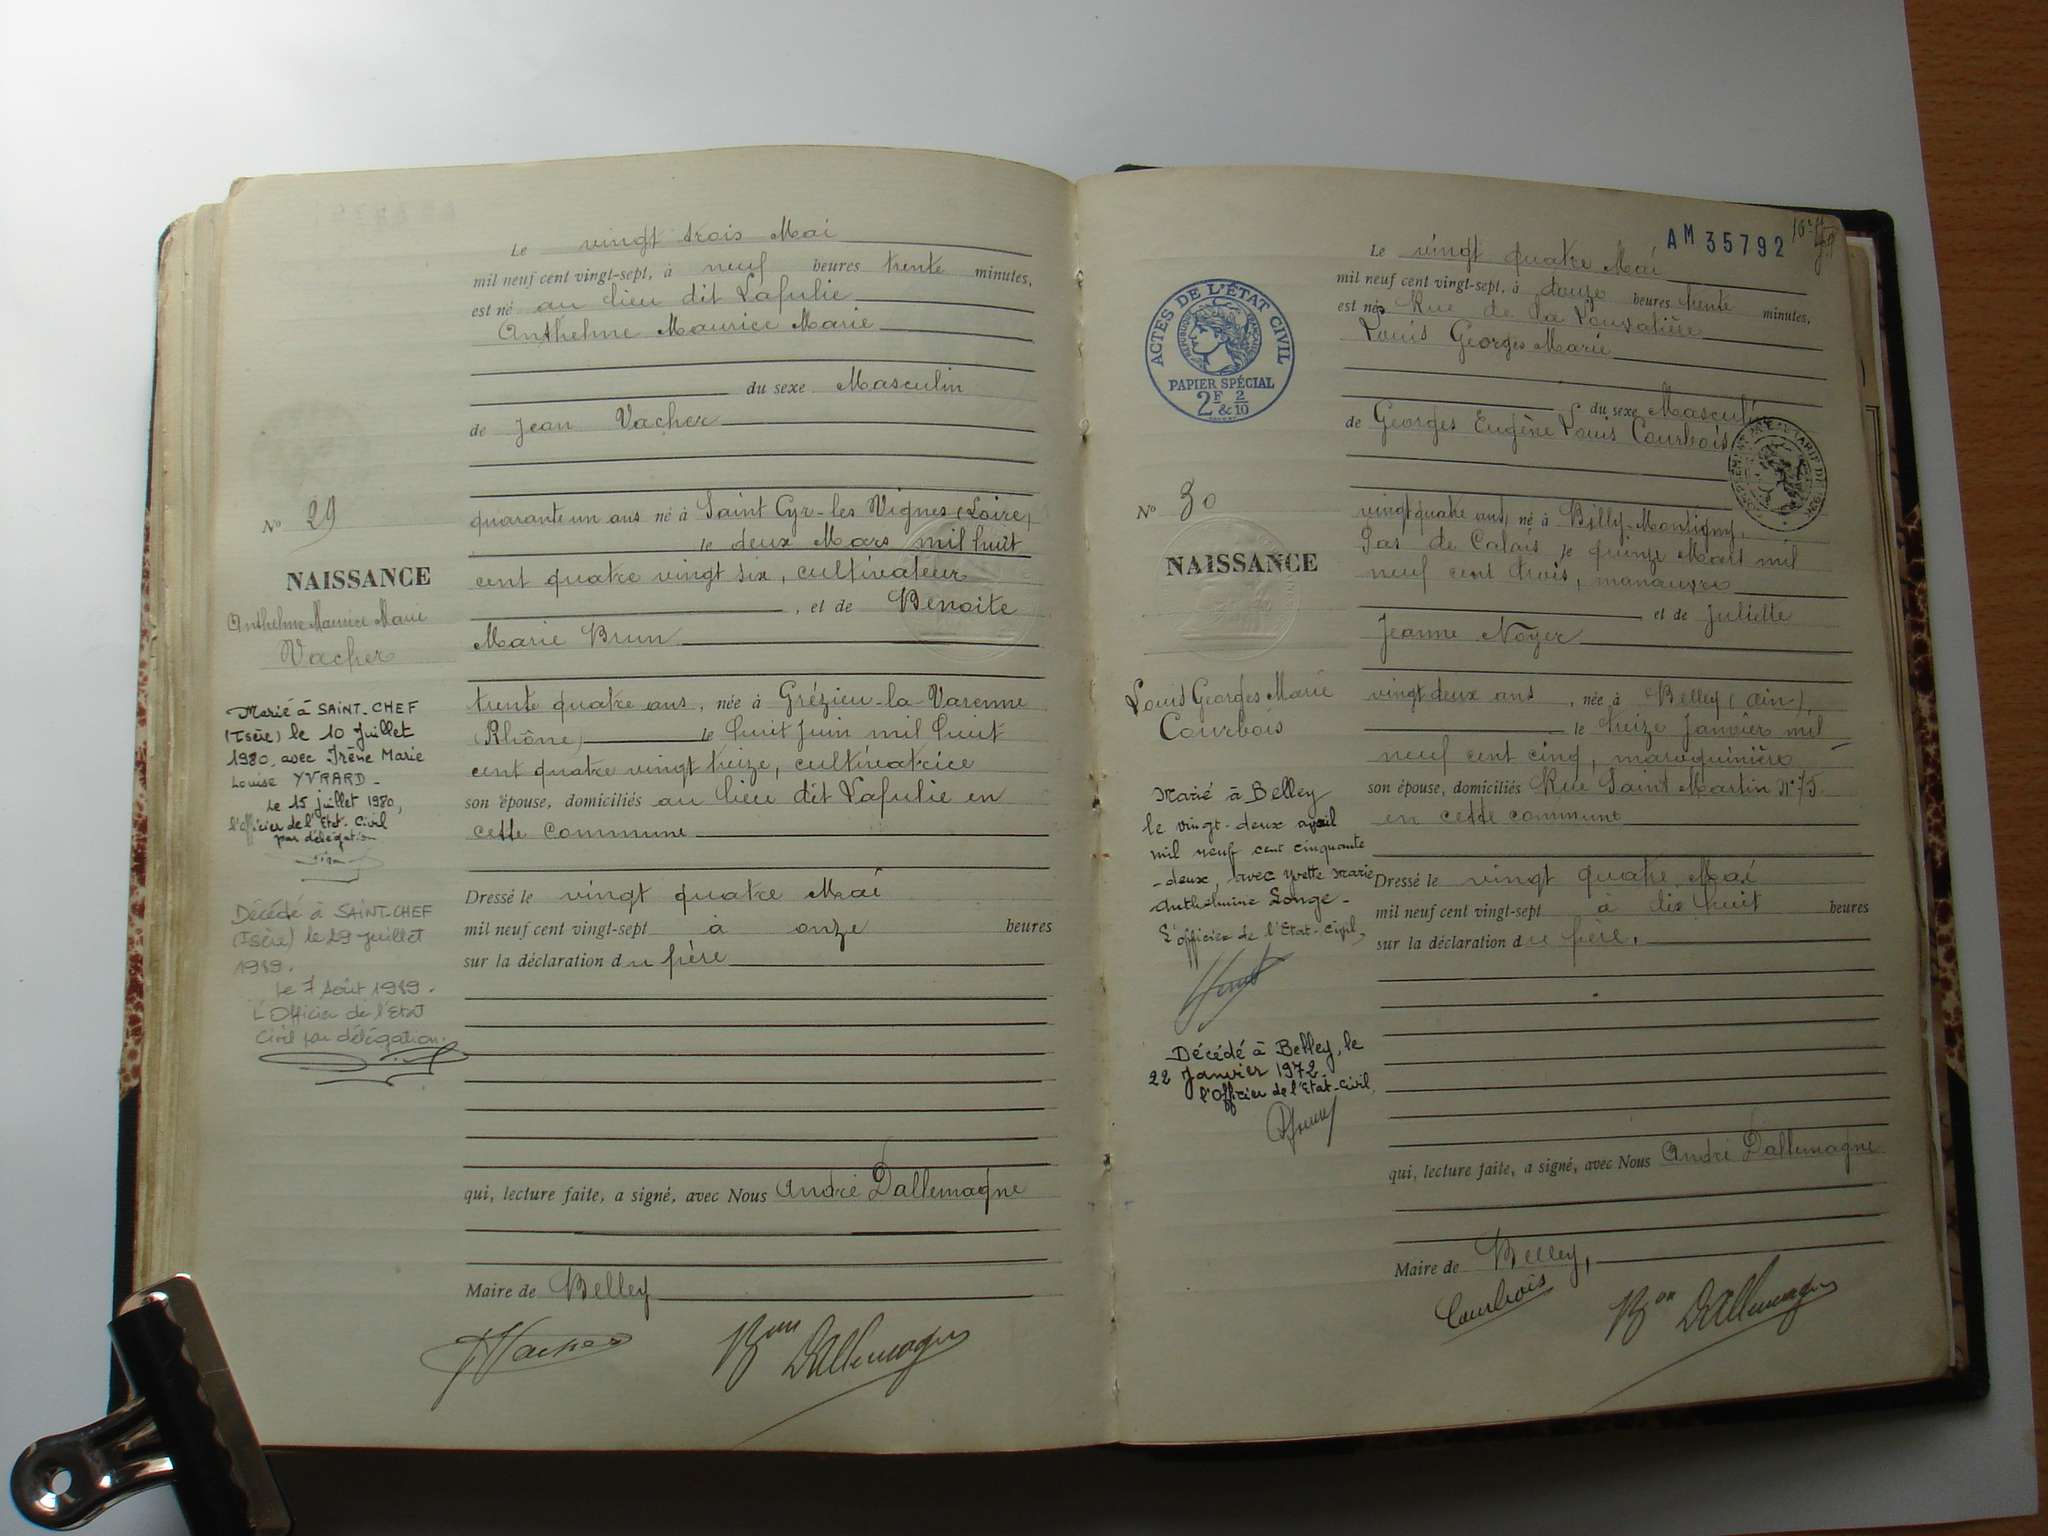 Le vingt trois Mai
mil neuf cent vingt-sept, à neuf heures trente minutes,
est né au lieu dit Lafulie
Anthelme Maurice Marie
du sexe Masculin
de Jean Vacher
N° 29
quarante un ans né à Saint Cyr-les Vignes (Loire)
le deux Mars mil huit
NAISSANCE
cent quatre vingt six, cultivateur
, et de Benoite
Anthelme Maurice Marie
Vacher
Marie Brun
trente quatre ans, née à Grézieu-la-Varenne
(Rhône) le huit Juin mil huit
cent quatre vingt treize, cultivatrice
son épouse, domiciliés au lieu dit Lafulie en
cette commune
Marié à SAINT-CHEF
(Isère) le 10 Juillet
1980, avec Irène Marie
Louise YVRARD -
Le 15 juillet 1980,
l'officier de l'Etat-Civil
par délégation
Dressé le vingt quatre Mai
mil neuf cent vingt-sept à onze heures
sur la déclaration du père
Décédé à SAINT-CHEF
(Isère) le 29 Juillet
1989.
Le 7 Août 1989.
L'Officier de l'Etat
Civil par délégation.
qui, lecture faite, a signé, avec Nous André Dallemagne
Maire de Belley
JVacher
Bon Dallemagne
AM 35792
Le vingt quatre Mai
mil neuf cent vingt-sept, à douze heures trente minutes,
est né Rue de la Louvatière
Louis Georges Marie
ACTES DE L'ÉTAT CIVIL
RÉPUBLIQUE FRANÇAISE
PAPIER SPÉCIAL
2F & 2/10
du sexe Masculin
de Georges Eugène Louis Courbois
N° 30
vingt quatre ans, né à Billy-Montigny,
Pas de Calais le quinze Mars mil
NAISSANCE
neuf cent trois, manœuvre
et de Juliette
Jeanne Noyer
Louis Georges Marie
Courbois
vingt deux ans, née à Belley (Ain),
le treize Janvier mil
neuf cent cinq, maroquinière
son épouse, domiciliés Rue Saint Martin N° 75
en cette commune
Marié à Belley
le vingt-deux avril
mil neuf cent cinquante
-deux, avec Yvette Marie
Anthelmine Longe -
L'officier de l'Etat-Civil,
Dressé le vingt quatre Mai
mil neuf cent vingt-sept à dix huit heures
sur la déclaration du père,
Décédé à Belley, le
22 Janvier 1972
l'Officier de l'Etat-Civil,
qui, lecture faite, a signé, avec Nous André Dallemagne
Maire de Belley,
Courbois
Bon Dallemagne